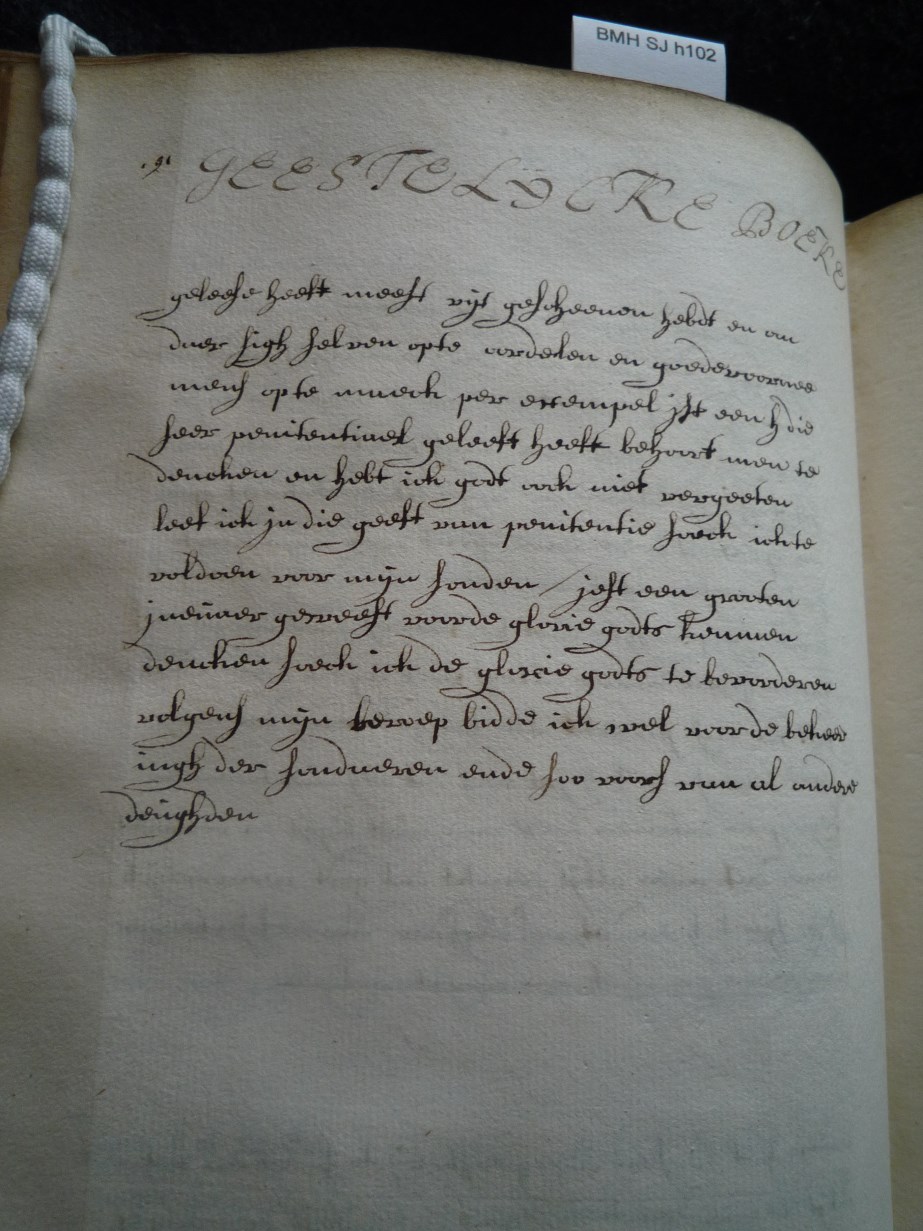 BMH SJ h102
GEESTELYCKE BOEKE
gelese heeft meest uijt gescheenen hebdt en an
daer sigh selven opte oordelen en goede voornee
mens opte maeck per exempel ist een h die
seer penitentiael geleeft heeft behoort men te
dencken en hebt ick godt oock niet vergeeten
leef ick in die geest van penitentie soeck ick te
voldoen voor mijn sonden / jest een grooten
jveijaer geweest voorde glorie godts kennen
dencken soeck ick de glorie godts te bevorderen
volgens mijn beroep bidde ick wel voorde bekeer
ingh der sondaeren ende soo voors van al andere
deughden